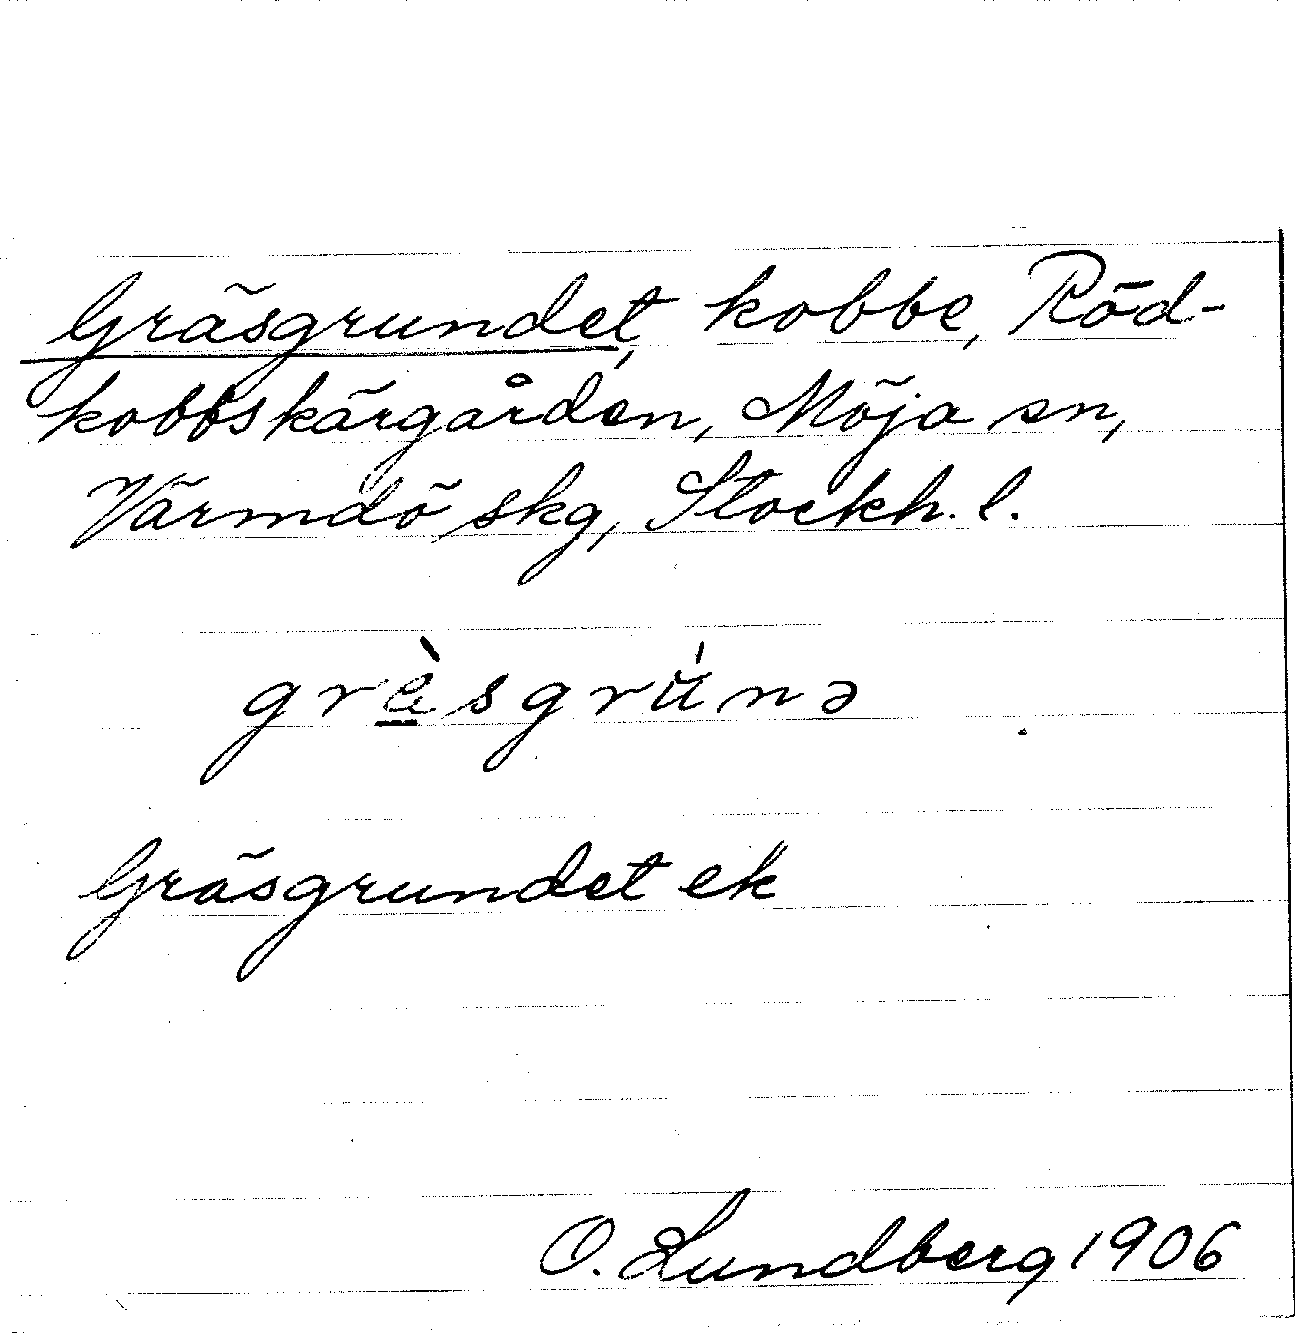 Gräsgrundet, kobbe, Röd-
kobbskärgården, Möja sn,
Värmdö skg, Stockh. l.
grè̱sgrú̇nə
Gräsgrundet ek
O. Lundberg 1906